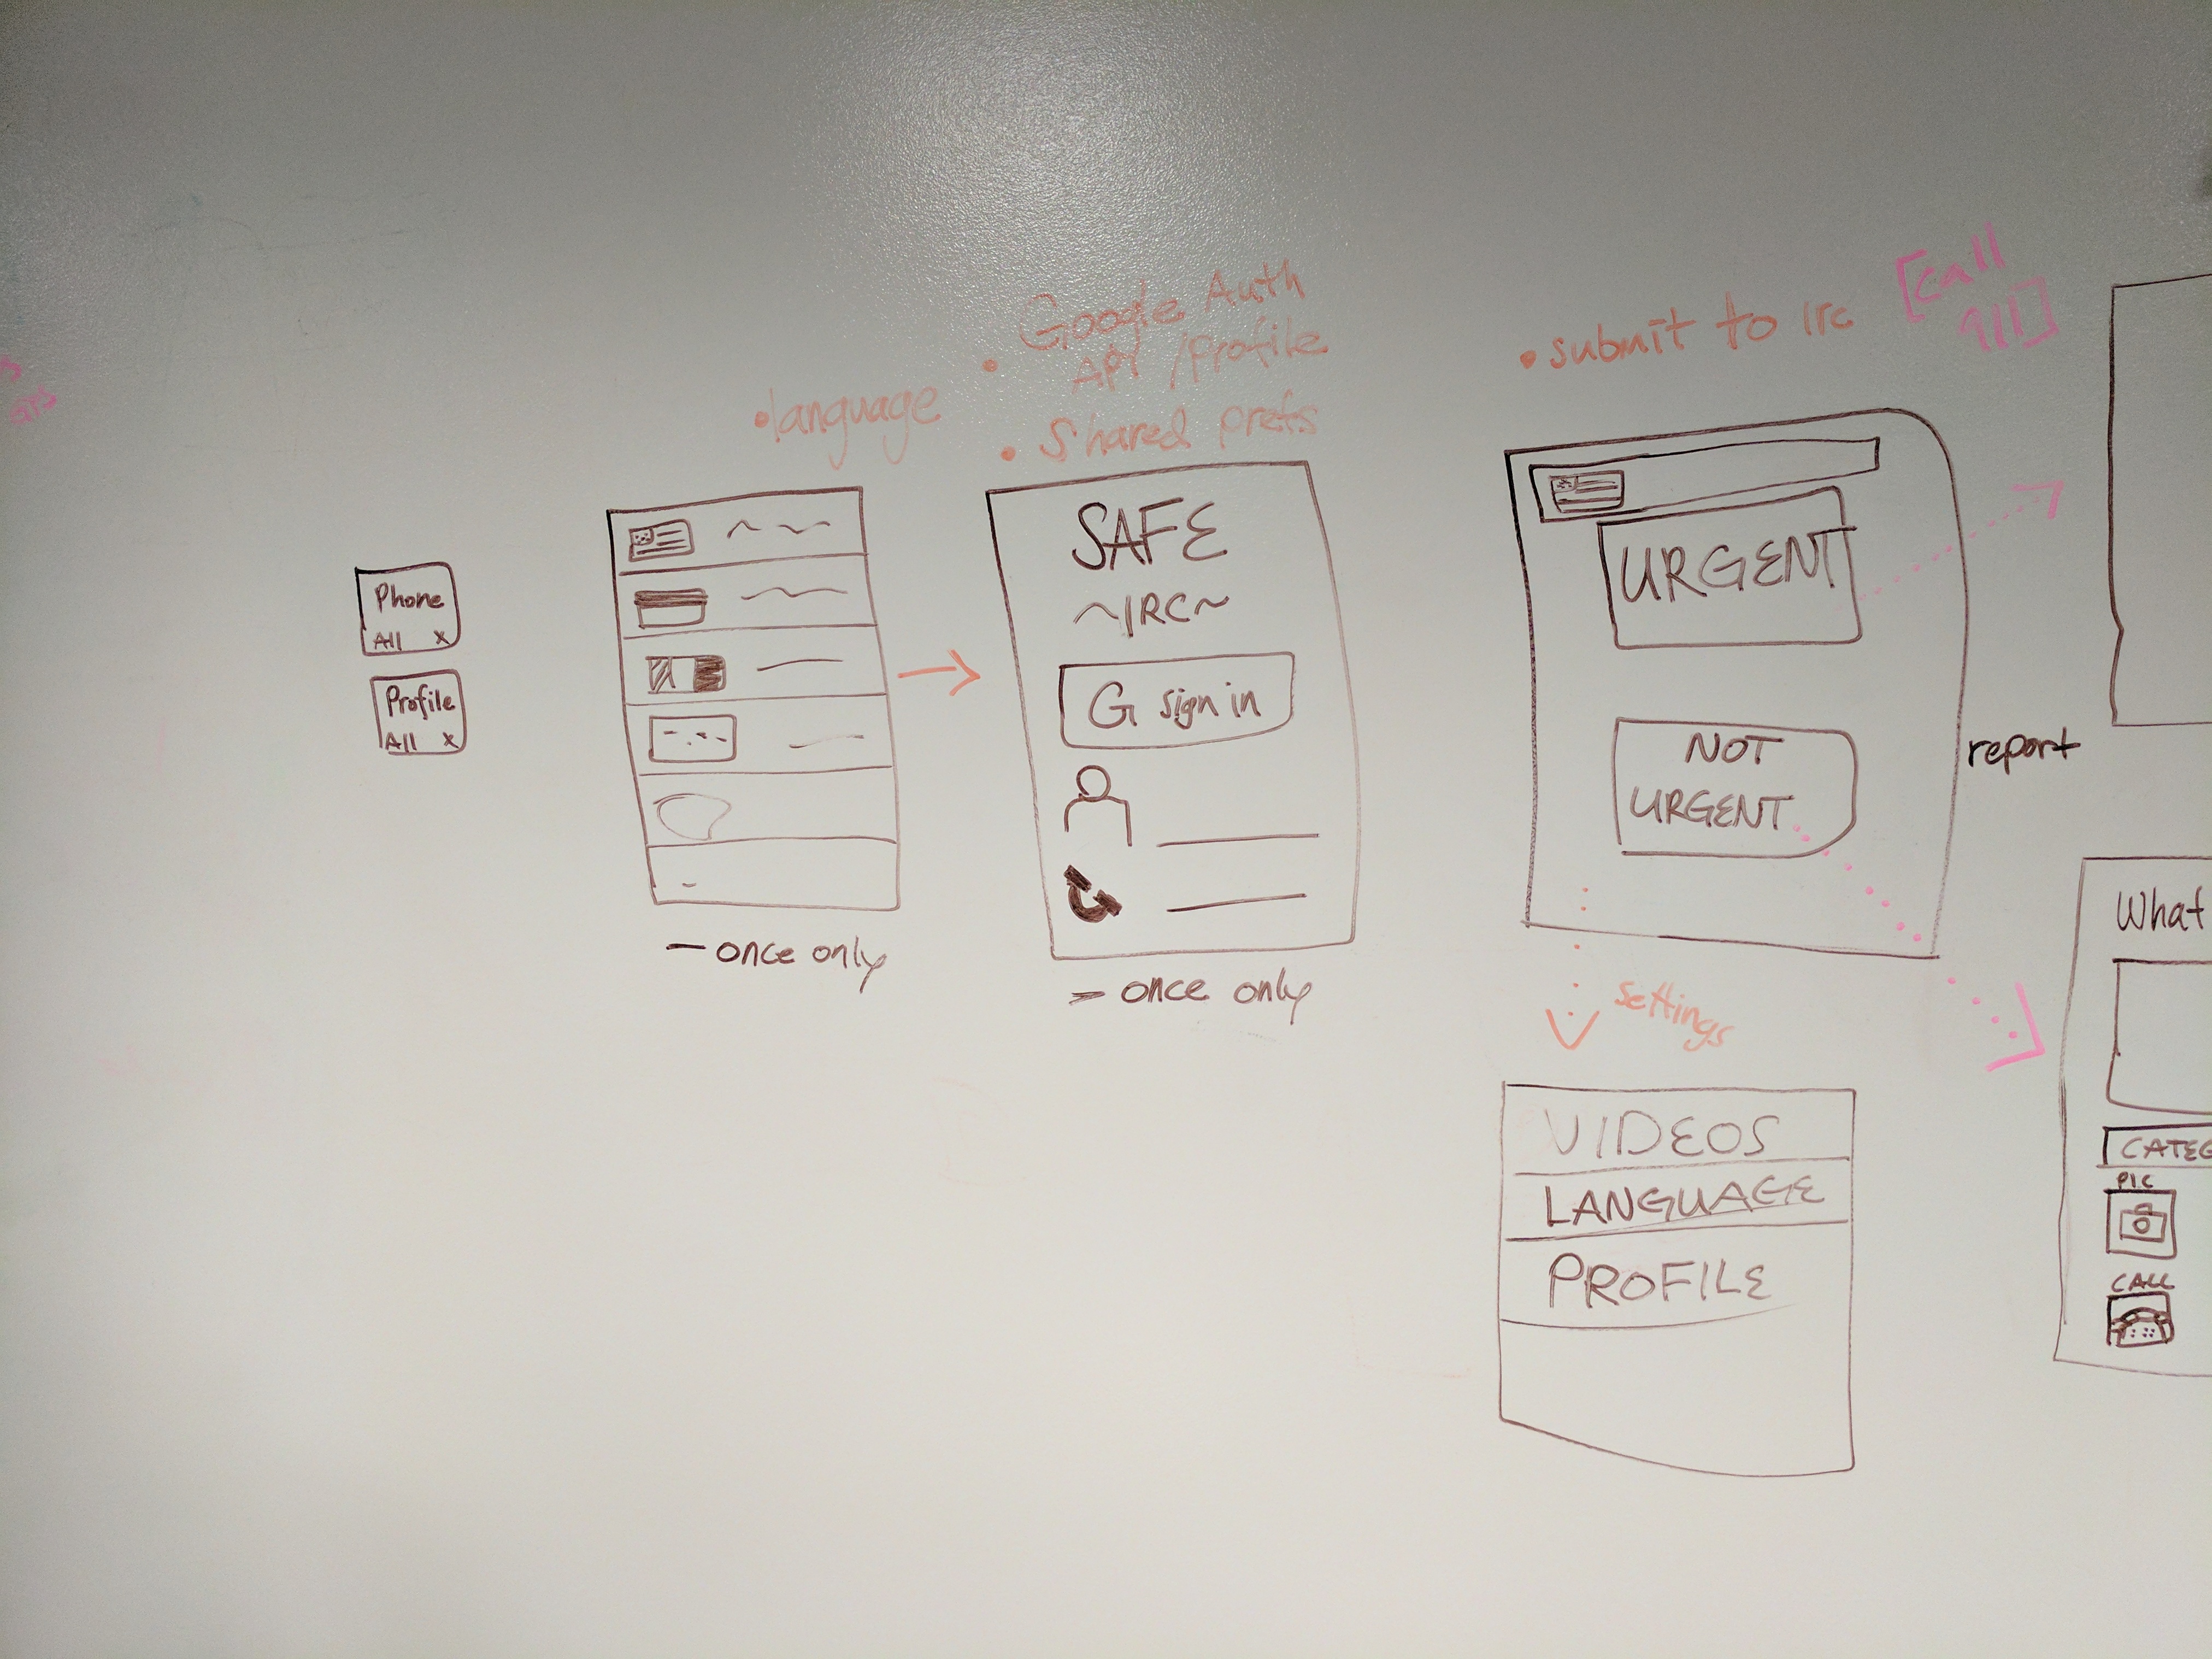 Phone
All x
Profile
All x
•language
— once only
• Google Auth
API /Profile
• Shared prefs
SAFE
~IRC~
G sign in
> once only
• submit to irc
[call
911]
URGENT
NOT
URGENT
report
settings
VIDEOS
LANGUAGE
PROFILE
What
CATEG
PIC
CALL